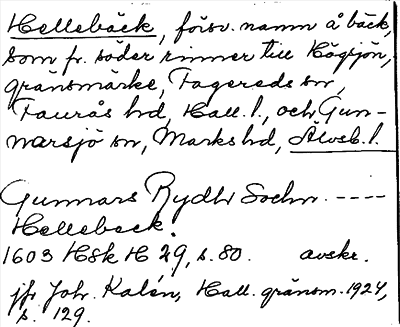 Hellebäck, försv. namn å bäck,
som fr. söder rinner till Högsjön,
gränsmärke, Fagereds sn,
Faurås hd, Hall. l., och Gun-
narsjö sn, Marks hd, Älvsb. l.
Gunnars Rydhr Sochn. ----
Hellebeck.
1603 HSk H 29, s. 80. avskr.
jfr Joh. Kalén, Hall. gränsm. 1924,
s. 129.